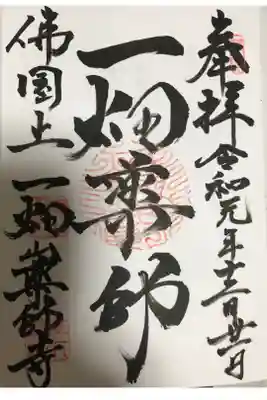 奉拝 令和元年十二月
一畑薬師
佛國土 一畑山薬師寺